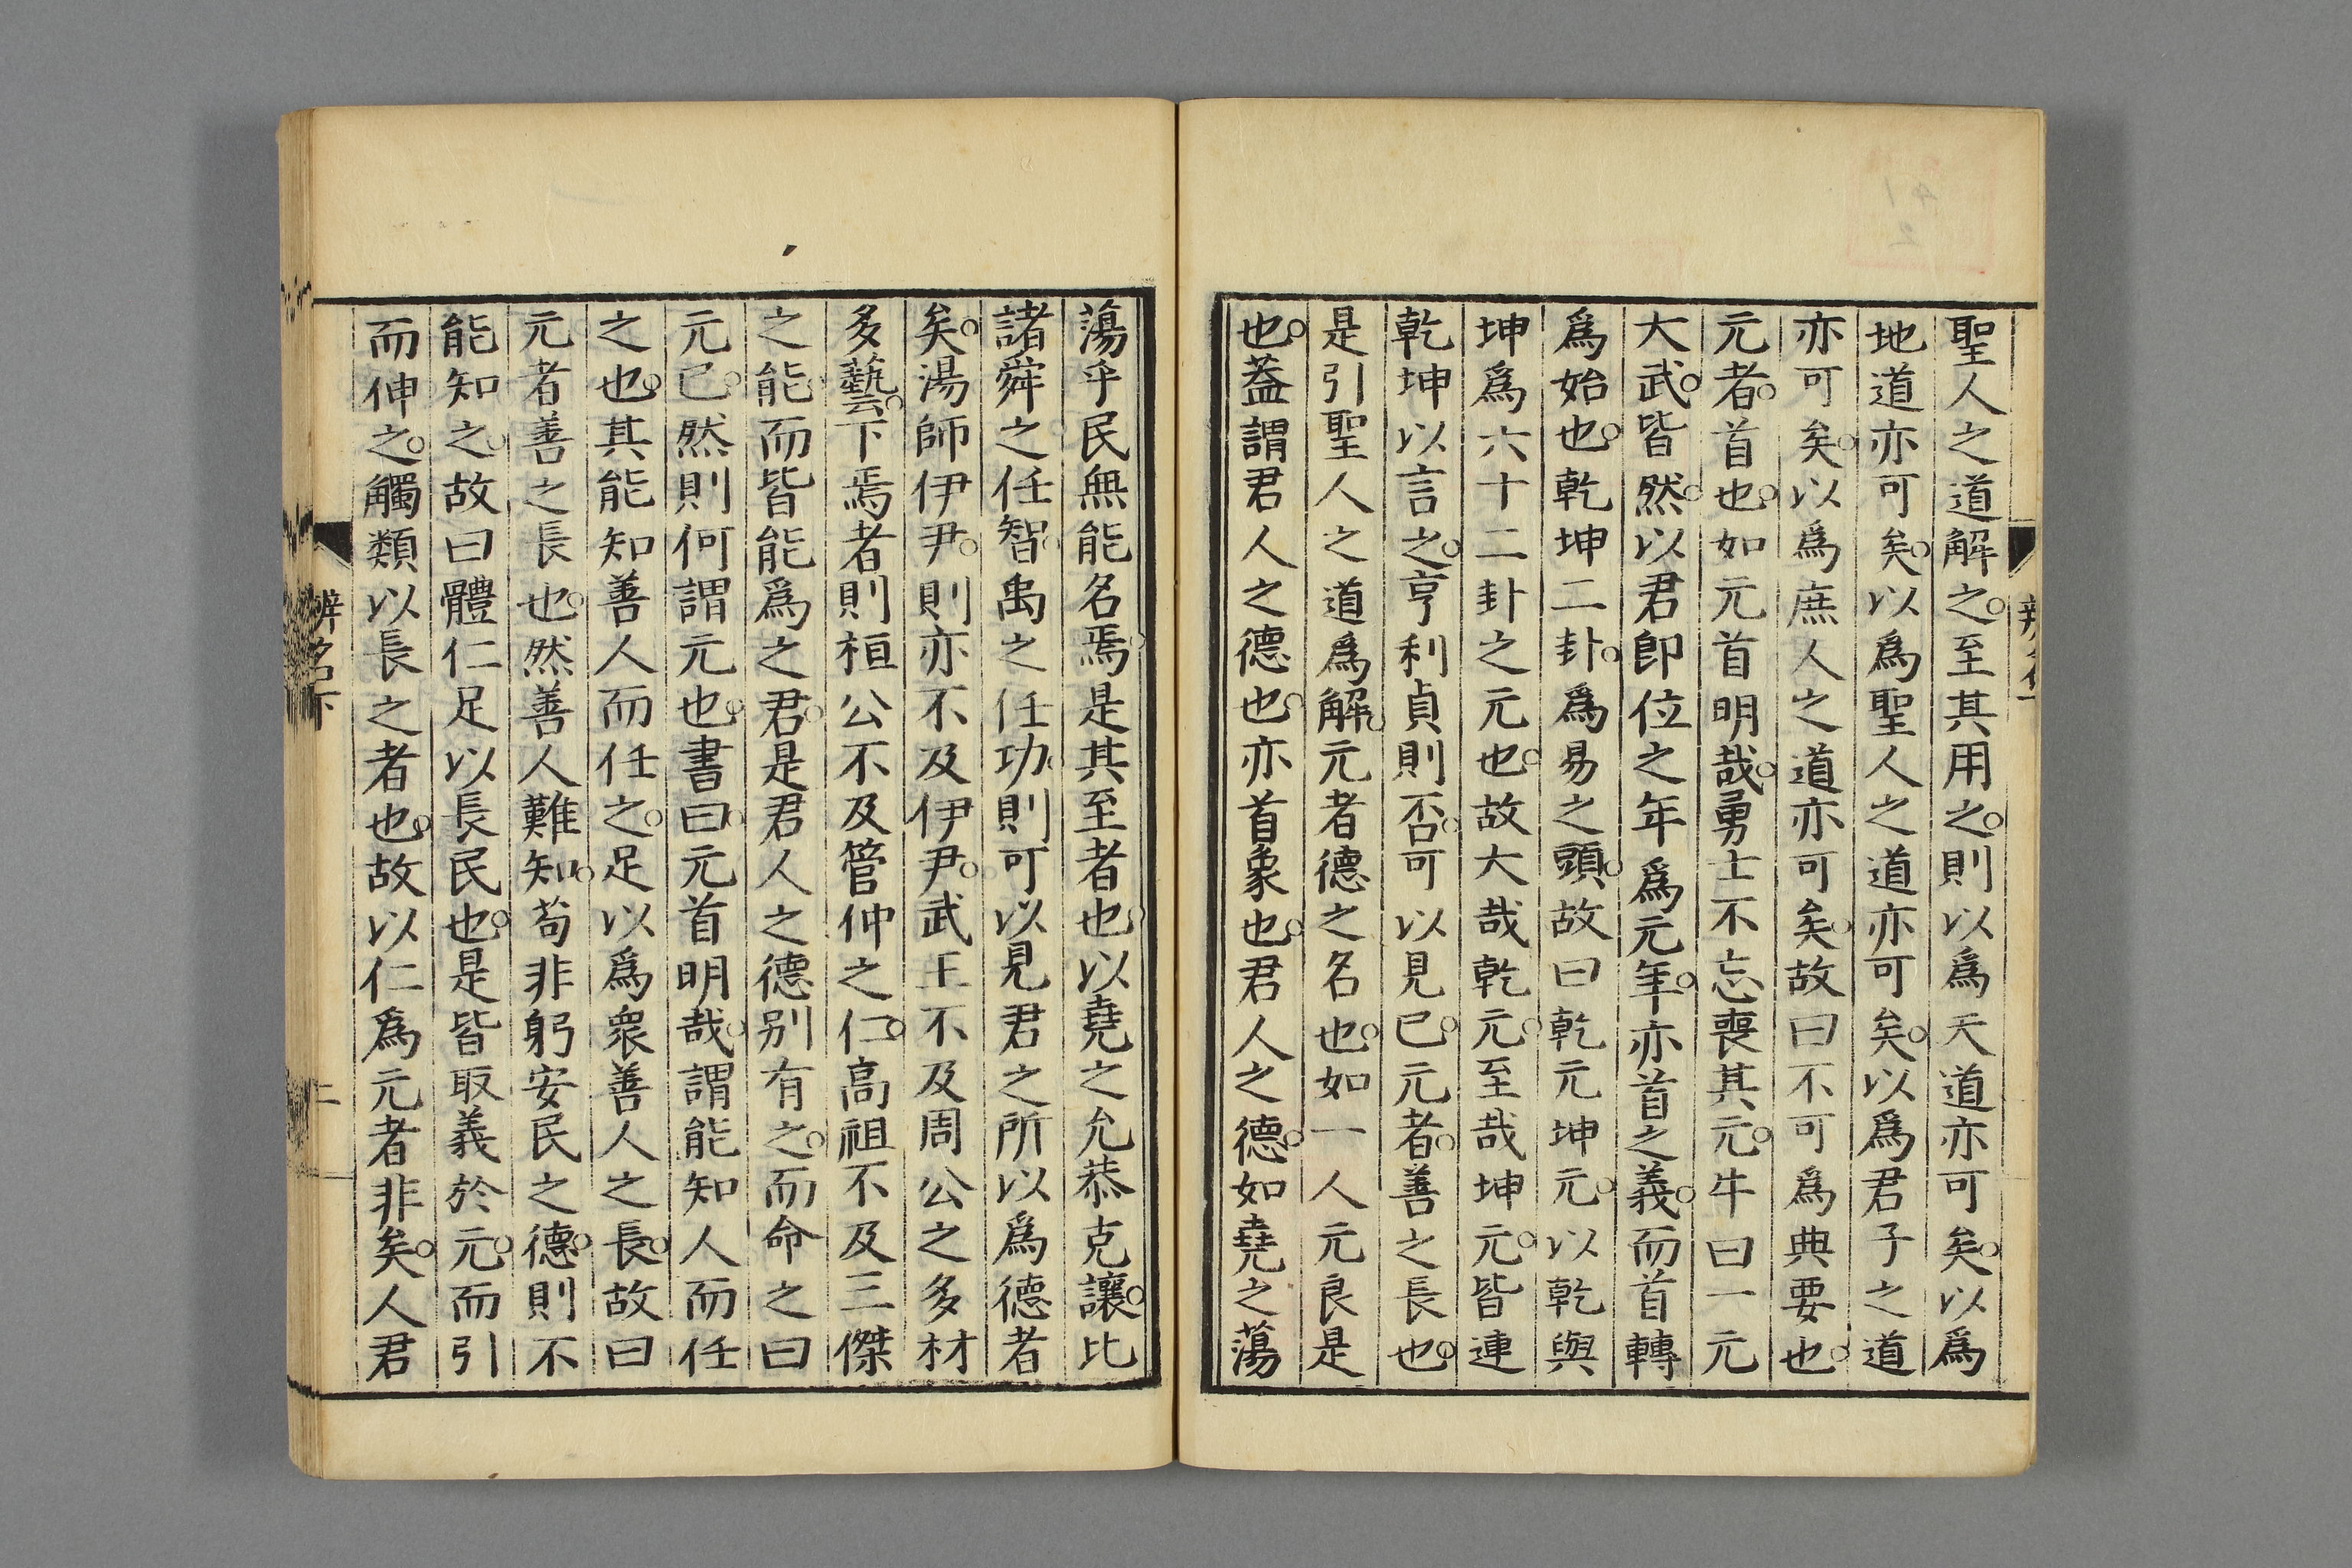 聖人之道解之。至其用之。則以爲天道亦可矣。以爲
地道亦可矣。以爲聖人之道亦可矣。以爲君子之道
亦可矣。以爲庶人之道亦可矣。故曰不可爲典要也。
元者。首也。如元首明哉。勇士不忘喪其元。牛曰一元
大武。皆然。以君即位之年爲元年。亦首之義。而首轉
爲始也。乾坤二卦。爲易之頭。故曰乾元坤元。以乾與
坤爲六十二卦之元也。故大哉乾元。至哉坤元。皆連
乾坤以言之。亨利貞則否。可以見已。元者。善之長也。
是引聖人之道爲解。元者德之名也。如一人元良是
也。蓋謂君人之德也。亦首象也。君人之德。如堯之蕩
蕩乎民無能名焉。是其至者也。以堯之允恭克讓。比
諸舜之任智。禹之任功。則可以見君之所以爲德者
矣。湯師伊尹。則亦不及伊尹。武王不及周公之多材
多藝。云下焉者則桓公不及管仲之仁。高祖不及三傑
之能。而皆能爲之君。是君人之德別有之。而命之曰
元已。然則何謂元也。書曰。元首明哉。謂能知人而任
之也。其能知善人而任之。足以爲衆善人之長。故曰
元者善之長也。然善人難知。苟非躬安民之德。則不
能知之。故曰體仁足以長民也。是皆取義於元。而引
而伸之。觸類以長之者也。故以仁爲元者非矣。人君
辨名下
二